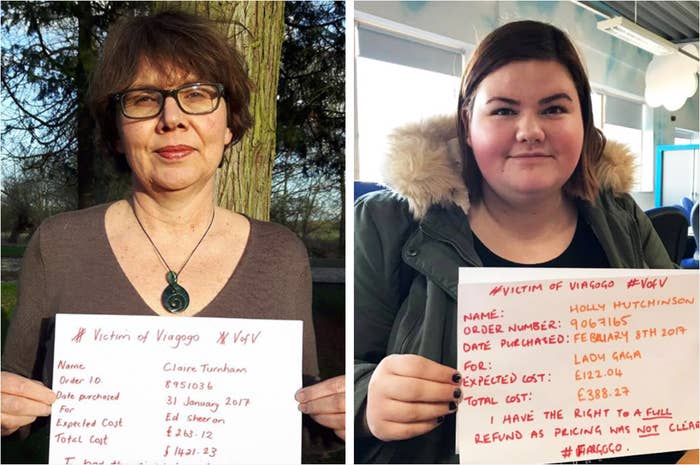 # Victim of Viagogo # VofV
Name Claire Turnham
Order I.D. 8951036
Date purchased 31 January 2017
For Ed Sheeran
Expected Cost £263.12
Total Cost £1421.23
#VICTIM OF VIAGOGO #VOFV
NAME: HOLLY HUTCHINSON
ORDER NUMBER: 9067165
DATE PURCHASED: FEBRUARY 8TH 2017
FOR: LADY GAGA
EXPECTED COST: £122.04
TOTAL COST: £388.27
I HAVE THE RIGHT TO A FULL
REFUND AS PRICING WAS NOT CLEAR